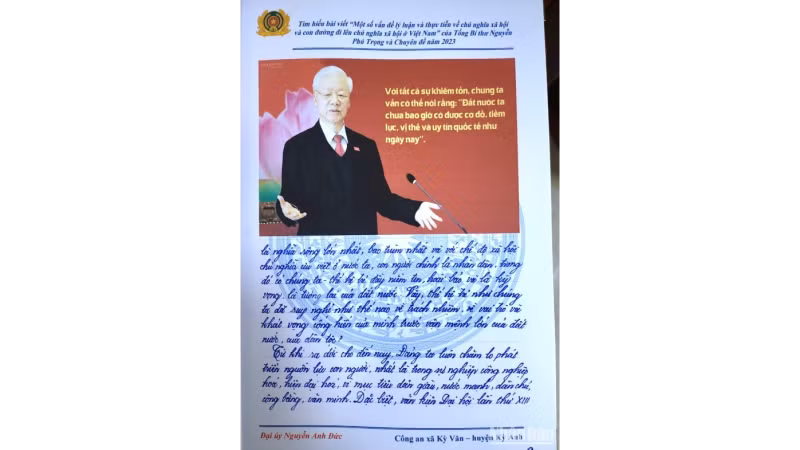 Tìm hiểu bài viết "Một số vấn đề lý luận và thực tiễn về chủ nghĩa xã hội
và con đường đi lên chủ nghĩa xã hội ở Việt Nam" của Tổng Bí thư Nguyễn
Phú Trọng và Chuyên đề năm 2023
Với tất cả sự khiêm tốn, chúng ta
vẫn có thể nói rằng: "Đất nước ta
chưa bao giờ có được cơ đồ, tiềm
lực, vị thế và uy tín quốc tế như
ngày nay".
là nghĩa sống lớn nhất, bao trùm nhất vì với chế độ xã hội
chủ nghĩa ưu việt ở nước ta, con người chính là nhân dân, trong
đó có chúng ta- thế hệ đầy niềm tin, hoài bão và là kỳ
vọng, là tương lai của đất nước. Vậy, thế hệ trẻ như chúng
ta đã suy nghĩ như thế nào về trách nhiệm, về vai trò và
khát vọng cống hiến của mình trước vận mệnh lớn của đất
nước, của dân tộc?
Từ khi ra đời cho đến nay, Đảng ta luôn chăm lo phát
triển nguồn lực con người, nhất là trong sự nghiệp công nghiệp
hoá, hiện đại hoá, vì mục tiêu dân giàu, nước mạnh, dân chủ,
công bằng, văn minh. Đặc biệt, văn kiện Đại hội lần thứ XIII
Đại úy Nguyễn Anh Đức
Công an xã Kỳ Văn – huyện Kỳ Anh